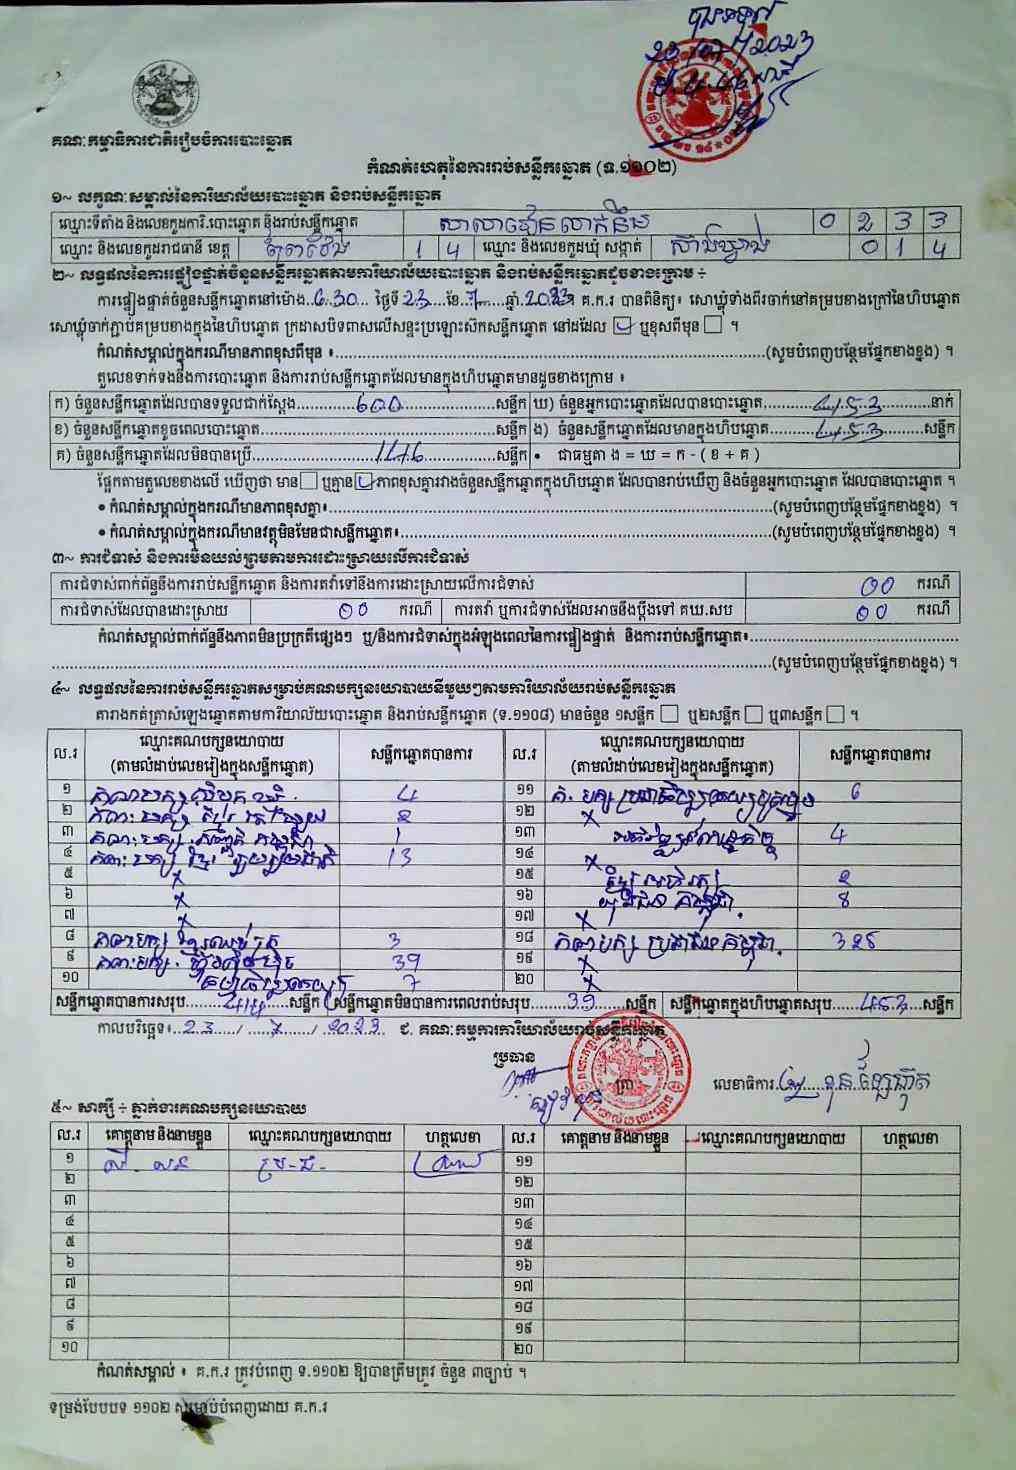 បានទទួល
23/07/2023
គណៈកម្មាធិការជាតិរៀបចំការបោះឆ្នោត
កំណត់ហេតុនៃការរាប់សន្លឹកឆ្នោត (ទ.១១០២)
១~ លក្ខណៈសម្គាល់នៃការិយាល័យបោះឆ្នោត និងរាប់សន្លឹកឆ្នោត
ឈ្មោះទីតាំង និងលេខកូដការិ.បោះឆ្នោត និងរាប់សន្លឹកឆ្នោត សាលារៀន 0 2 3 3
ឈ្មោះ និងលេខកូដរាជធានី ខេត្ត ព្រៃវែង 1 4 ឈ្មោះ និងលេខកូដឃុំ សង្កាត់ 0 1 4
២~ លទ្ធផលនៃការផ្ទៀងផ្ទាត់ចំនួនសន្លឹកឆ្នោតតាមការិយាល័យបោះឆ្នោត និងរាប់សន្លឹកឆ្នោតដូចខាងក្រោម ÷
ការផ្ទៀងផ្ទាត់ចំនួនសន្លឹកឆ្នោតនៅម៉ោង..6:30 ថ្ងៃទី 23 ខែ 7 ឆ្នាំ 2023 គ.ក.រ បានពិនិត្យ៖ សោឃ្លុំទាំងពីរចាក់នៅគម្របខាងក្រៅនៃហិបឆ្នោត
សោឃ្លុំចាក់ភ្ជាប់គម្របខាងក្នុងនៃហិបឆ្នោត ក្រដាសបិទពាសលើសន្ទះប្រឡោះស៊កសន្លឹកឆ្នោត នៅដដែល ☑ ឬខុសពីមុន ☐ ។
កំណត់សម្គាល់ក្នុងករណីមានភាពខុសពីមុន ៖.....(សូមបំពេញបន្ថែមផ្នែកខាងខ្នង) ។
តួលេខទាក់ទងនឹងការបោះឆ្នោត និងការរាប់សន្លឹកឆ្នោតដែលមានក្នុងហិបឆ្នោតមានដូចខាងក្រោម ៖
ក) ចំនួនសន្លឹកឆ្នោតដែលបានទទួលជាក់ស្ដែង.....600.....សន្លឹក ឃ) ចំនួនអ្នកបោះឆ្នោតដែលបានបោះឆ្នោត.....453.....នាក់
ខ) ចំនួនសន្លឹកឆ្នោតខូចពេលបោះឆ្នោត.....សន្លឹក ង) ចំនួនសន្លឹកឆ្នោតដែលមានក្នុងហិបឆ្នោត.....453.....សន្លឹក
គ) ចំនួនសន្លឹកឆ្នោតដែលមិនបានប្រើ.....146.....សន្លឹក • ជាធម្មតា ង = ឃ = ក - ( ខ + គ )
ផ្អែកតាមតួលេខខាងលើ ឃើញថា មាន ☐ ឬគ្មាន ☑ ភាពខុសគ្នារវាងចំនួនសន្លឹកឆ្នោតក្នុងហិបឆ្នោត ដែលបានរាប់ឃើញ និងចំនួនអ្នកបោះឆ្នោត ដែលបានបោះឆ្នោត ។
• កំណត់សម្គាល់ក្នុងករណីមានភាពខុសគ្នា៖.....(សូមបំពេញបន្ថែមផ្នែកខាងខ្នង) ។
• កំណត់សម្គាល់ក្នុងករណីមានវត្ថុមិនមែនជាសន្លឹកឆ្នោត៖.....(សូមបំពេញបន្ថែមផ្នែកខាងខ្នង) ។
៣~ ការជំទាស់ និងការមិនយល់ព្រមតាមការដោះស្រាយលើការជំទាស់
ការជំទាស់ពាក់ព័ន្ធនឹងការរាប់សន្លឹកឆ្នោត និងការតវ៉ាទៅនឹងការដោះស្រាយលើការជំទាស់ 00 ករណី
ការជំទាស់ដែលបានដោះស្រាយ 00 ករណី ការតវ៉ា ឬការជំទាស់ដែលអាចនឹងប្ដឹងទៅ គឃ.សប 00 ករណី
កំណត់សម្គាល់ពាក់ព័ន្ធនឹងភាពមិនប្រក្រតីផ្សេងៗ ឬ/និងការជំទាស់ក្នុងអំឡុងពេលនៃការផ្ទៀងផ្ទាត់ និងការរាប់សន្លឹកឆ្នោត៖.....
.....(សូមបំពេញបន្ថែមផ្នែកខាងខ្នង) ។
៤~ លទ្ធផលនៃការរាប់សន្លឹកឆ្នោតសម្រាប់គណបក្សនយោបាយនីមួយៗតាមការិយាល័យរាប់សន្លឹកឆ្នោត
តារាងកត់ត្រាសំឡេងឆ្នោតតាមការិយាល័យបោះឆ្នោត និងរាប់សន្លឹកឆ្នោត (ទ.១១០៨) មានចំនួន ១សន្លឹក ☐ ឬ២សន្លឹក ☐ ឬ៣សន្លឹក ☐ ។
ល.រ ឈ្មោះគណបក្សនយោបាយ (តាមលំដាប់លេខរៀងក្នុងសន្លឹកឆ្នោត) សន្លឹកឆ្នោតបានការ ល.រ ឈ្មោះគណបក្សនយោបាយ (តាមលំដាប់លេខរៀងក្នុងសន្លឹកឆ្នោត) សន្លឹកឆ្នោតបានការ
១ គណបក្ស 4 ១១ គ. បក្ស 6
២ គណៈបក្ស 2 ១២ x
៣ គណៈបក្ស 1 ១៣ 4
៤ គណៈបក្ស ខ្មែរ រួបរួមជាតិ 13 ១៤ x
៥ x ១៥ 2
៦ x ១៦ 8
៧ x ១៧ x
៨ គណបក្ស 3 ១៨ គណបក្ស ប្រជាជនកម្ពុជា 325
៩ គណៈបក្ស ហ៊្វុនស៊ិនប៉ិច 39 ១៩ x
១០ 7 ២០ x
សន្លឹកឆ្នោតបានការសរុប.....414.....សន្លឹក សន្លឹកឆ្នោតមិនបានការពេលរាប់សរុប.....39.....សន្លឹក សន្លឹកឆ្នោតក្នុងហិបឆ្នោតសរុប.....453.....សន្លឹក
កាលបរិច្ឆេទ៖..23../..7../..2023.. ជ. គណៈកម្មការការិយាល័យរាប់សន្លឹកឆ្នោត
ប្រធាន
ត្រា លេខាធិការ
៥~ សាក្សី ÷ ភ្នាក់ងារគណបក្សនយោបាយ
ល.រ គោត្តនាម និងនាមខ្លួន ឈ្មោះគណបក្សនយោបាយ ហត្ថលេខា ល.រ គោត្តនាម និងនាមខ្លួន ឈ្មោះគណបក្សនយោបាយ ហត្ថលេខា
១ ប្រ-ជ- ១១
២ ១២
៣ ១៣
៤ ១៤
៥ ១៥
៦ ១៦
៧ ១៧
៨ ១៨
៩ ១៩
១០ ២០
កំណត់សម្គាល់ ៖ គ.ក.រ ត្រូវបំពេញ ទ.១១០២ ឱ្យបានត្រឹមត្រូវ ចំនួន ៣ច្បាប់ ។
ទម្រង់បែបបទ ១១០២ សម្រាប់បំពេញដោយ គ.ក.រ